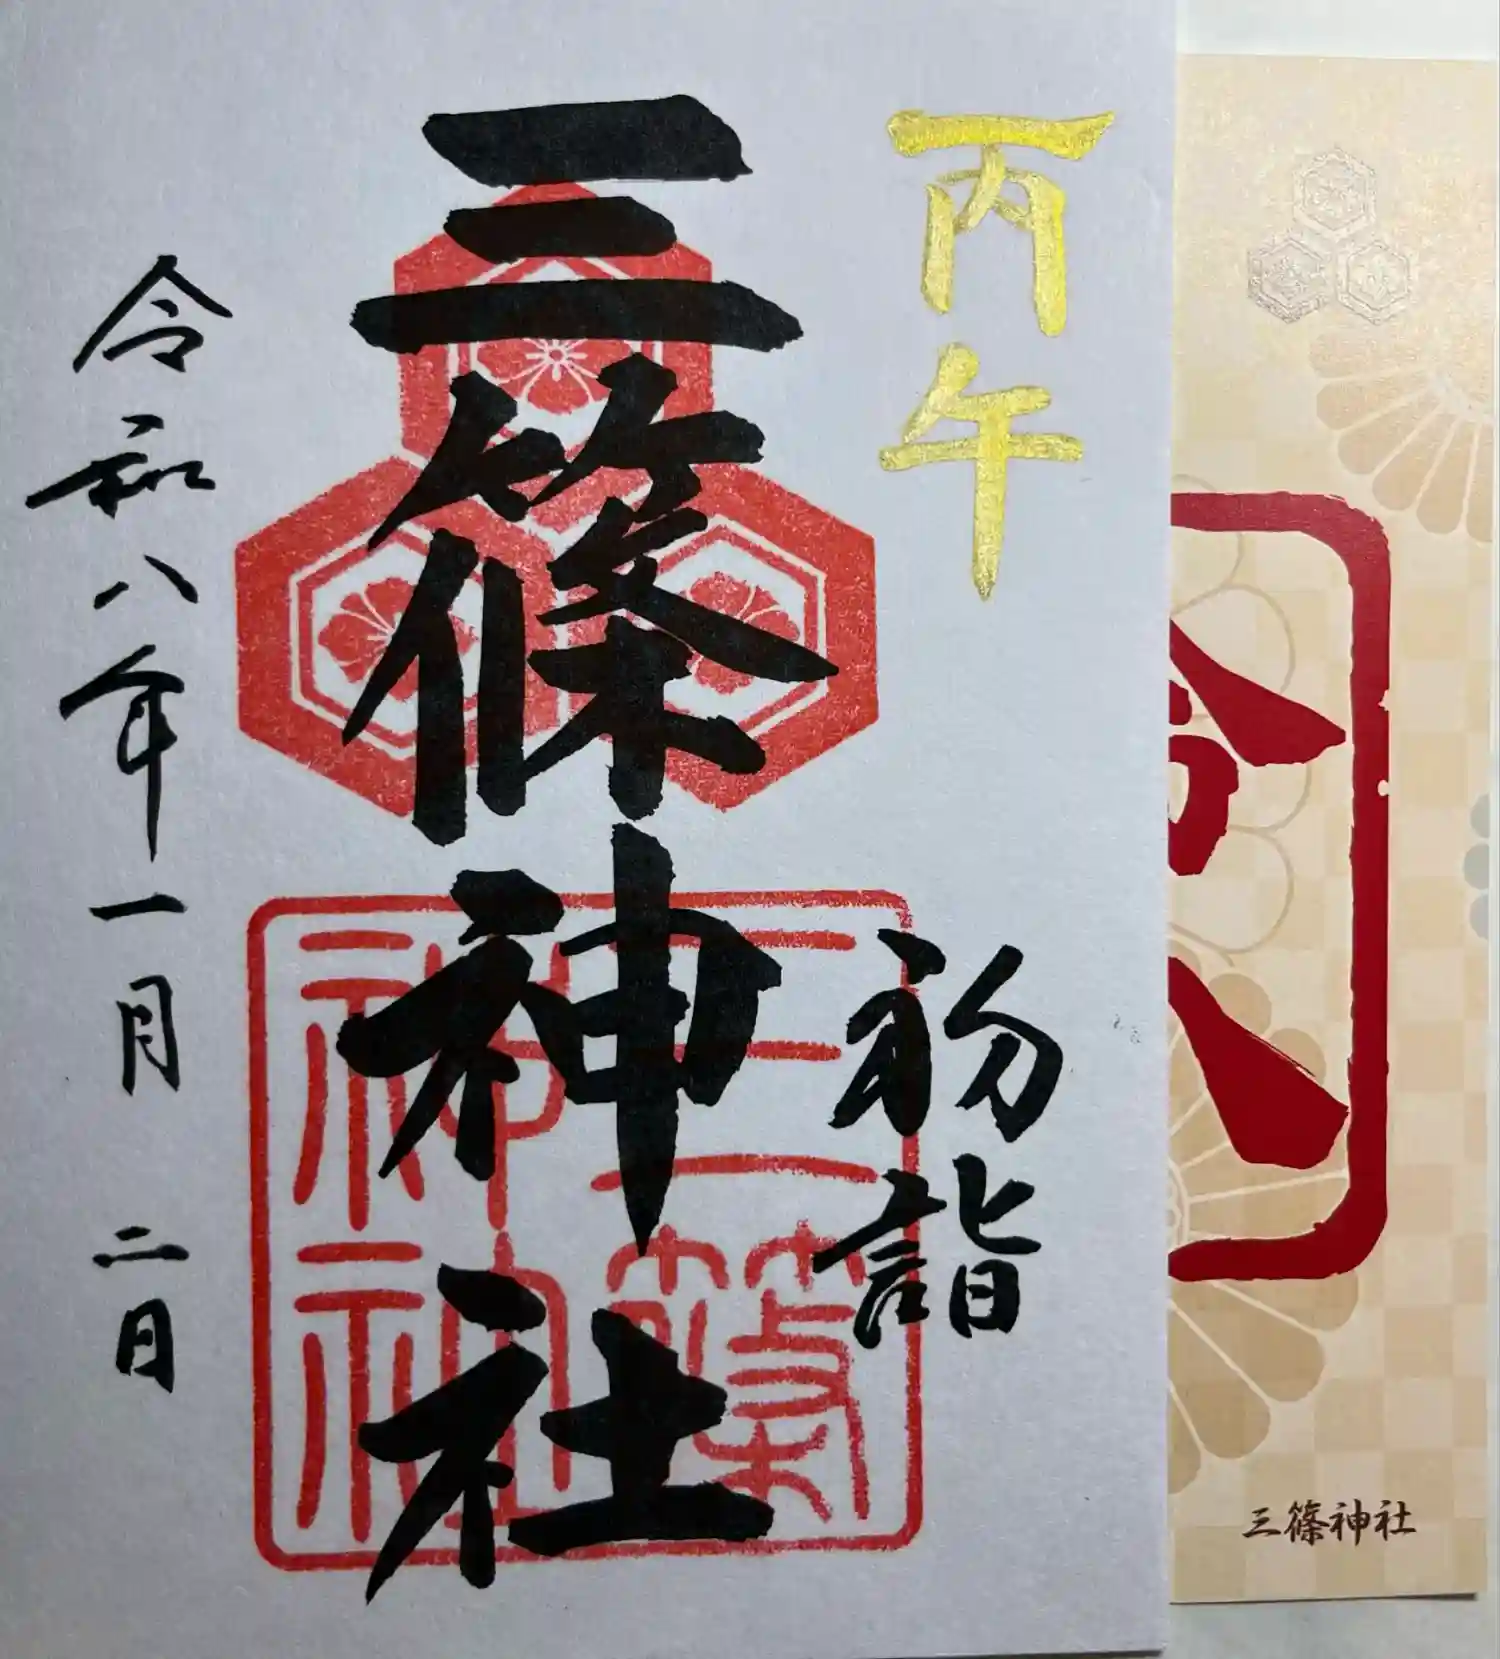 丙午
初詣
三篠神社
三篠神社
令和八年一月二日
三篠神社